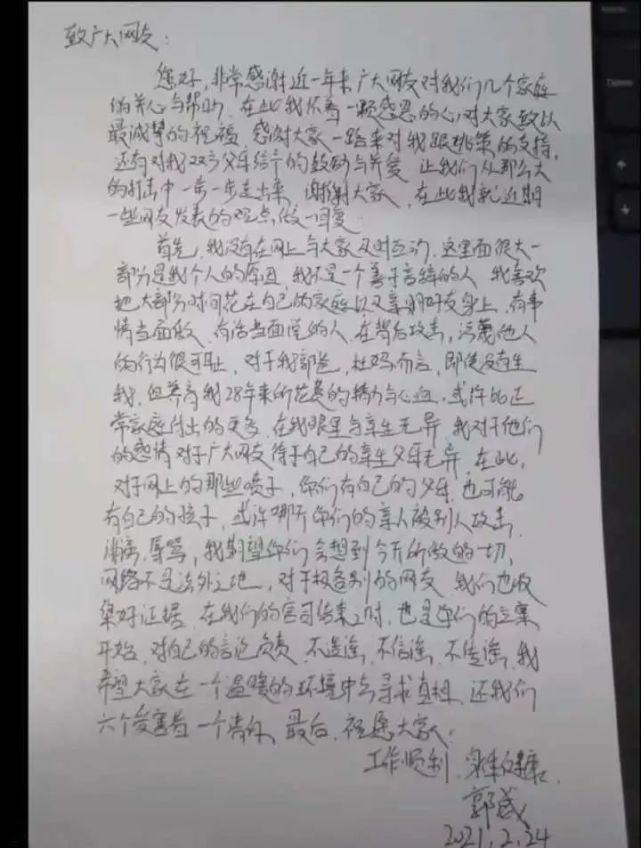 致广大网友:
您好,非常感谢近一年来广大网友对我们几个家庭
的关心与帮助,在此我怀着一颗感恩的心,对大家致以
最诚挚的祝福,感谢大家一路来对我跟姚策的支持,
还有对我双方父母给予的鼓励与关爱,让我们从那么大
的打击中一步一步走出来,谢谢大家,在此我就近期
一些网友发表的观点做一回复:
首先,我没有在网上与大家及时互动,这里面很大一
部分是我个人的原因,我不是一个善于言辞的人,我喜欢
把大部分时间花在自己的家庭以及亲朋好友身上,有事
情当面做,有话当面说的人,在背后攻击,污蔑他人
的行为很可耻,对于我郭爸,杜妈而言,即使没有生
我,但养育我28年来所花费的精力与心血,或许比正
常家庭付出的更多,在我眼里与亲生无异,我对于他们
的感情对于广大网友待于自己的亲生父母无异,在此,
对于网上的那些喷子,你们有自己的父母,也可能
有自己的孩子,或许哪天你们的亲人被别人攻击,
辱骂,我期望你们会想到今天所做的一切,
网络不是法外之地,对于极各别的网友,我们也收
集好证据,在我们的官司结束之时,也是你们的立案
开始,对自己的言论负责,不造谣,不信谣,不传谣,我
希望大家在一个温暖的环境中去寻求真相,还我们
六个受害者一个清白,最后,祝愿大家:
工作顺利,家庭健康。
郭威
2021.2.24
Delete